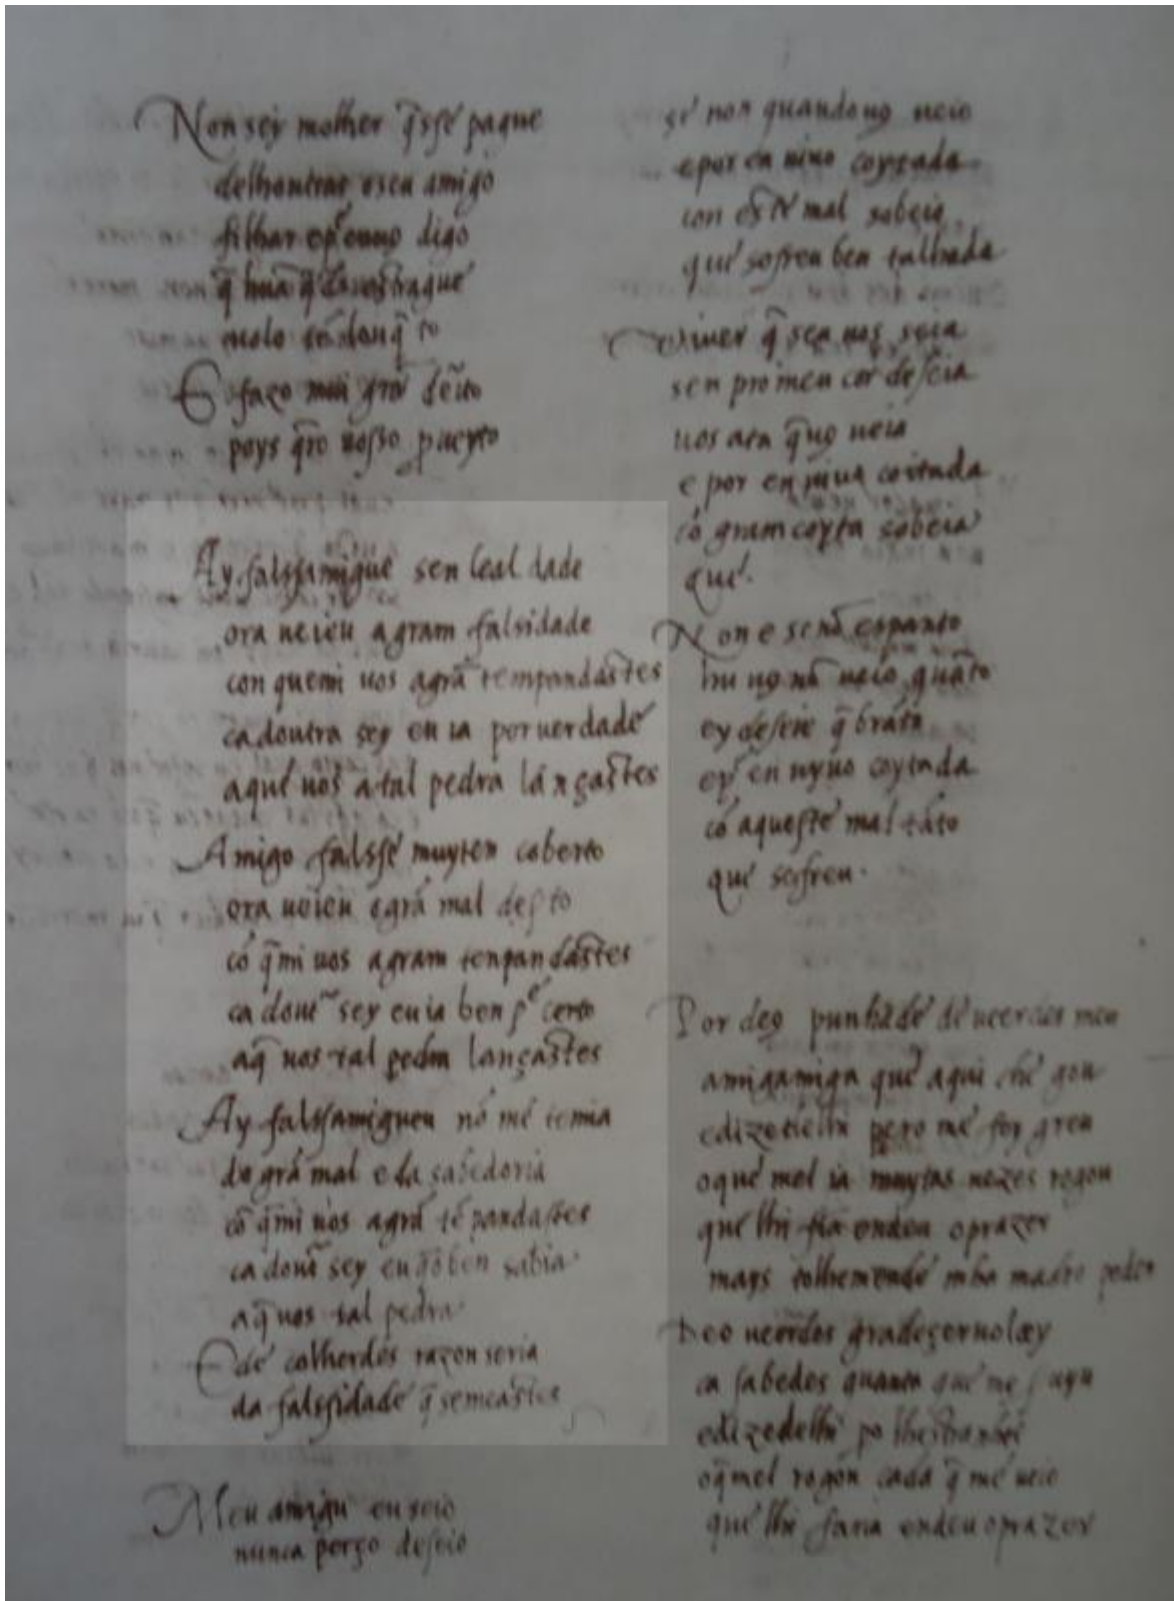 Non sey molher q̄sse pague
delhoutras oseu amigo
filhar
q̄
E faço
poys q̄ro uosso preyto
Ay falssamigue sen leal dade
ora ueieu agram falsidade
con quemi uos agrā tempandastes
cadoutra sey eu ia poruerdade
aque uos atal pedra lançastes
Amigo falsse muyten coberto
ora ueieu egrā mal
cō q̄mi uos agram tenpandastes
ca sey euia ben certo
aq̄ uos tal pedra lançastes
Ay falssamigueu nō me temia
do grā mal eda sabedoria
cō q̄mi uos agrā tē pandastes
ca sey ben sabia
aq̄ uos tal pedra
E de colherdes razon seria
da falssidade q̄ semeastes
Meu amigu euseio
nunca perço deseio
se non quandouꝯ ueio
epor en uiuo coytada
con este mal sobeio
que sofreu ben talhada
Viuer q̄ sen uos seia
sen pro meu cor deseia
uos ata q̄uꝯ ueia
e por en coitada
cō gram coyta sobeia
que
Non e espanto
hu uꝯ nō ueio quāto
ey deseie q̄ brāto
en uyuo coytada
cō aqueste mal tāto
que sofreu
Por deꝯ punhade de ueerdes meu
amigamiga que aqui che gou
edizedelhi pero me foy greu
oque mel ia muytas uezes rogou
que lhi endeu oprazer
mays tolhemende mha madre poder
Deo ueerdes gradeçeruoloey
ca sabedes quanta que me
edizedelhi
oq̄mel rogou cada q̄ me ueio
que lhi faria endeu oprazer